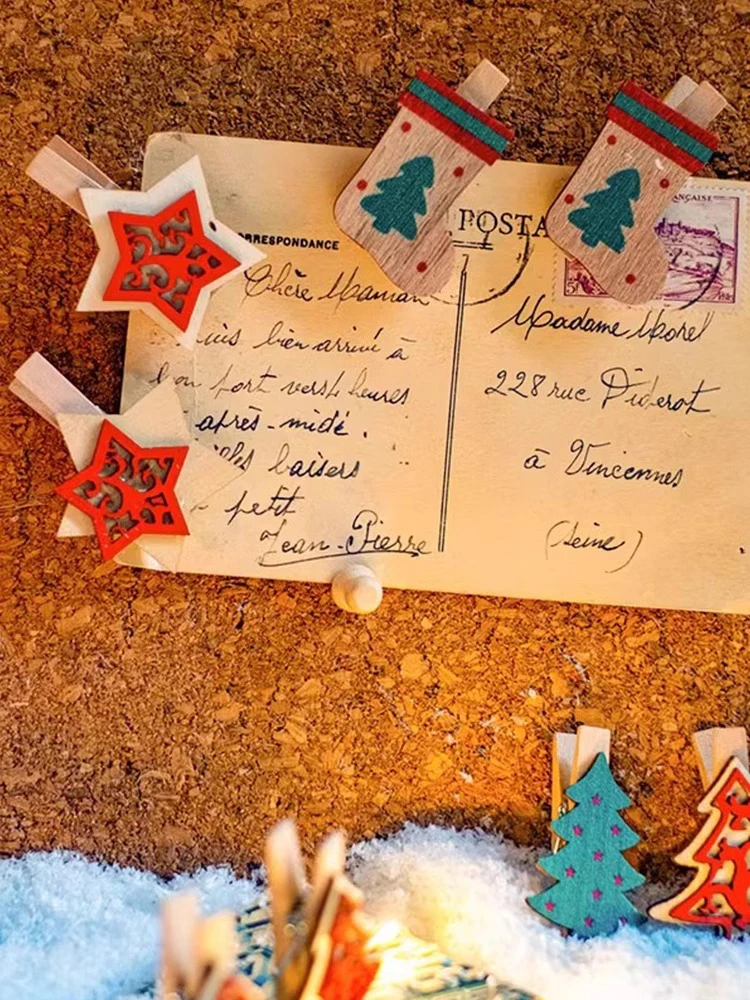 RRESPONDANCE
POSTA
ANÇAISE
Chère Maman
uis bien arrivé à
port vers heures
après-midi.
baisers
petit
Jean-Pierre
Madame Morel
228 rue Diderot
à Vincennes
(Seine)